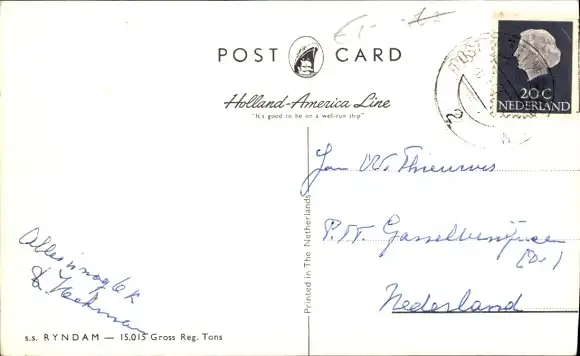 POST CARD
Holland-America Line
"It's good to be on a well-run ship"
20 C
NEDERLAND
Fam W. Thieurwis
P.tt. Gasselternijveen
(Dr.)
Nederland
Alles is nog O.K.
s.s. RYNDAM — 15,015 Gross Reg. Tons
Printed in The Netherlands